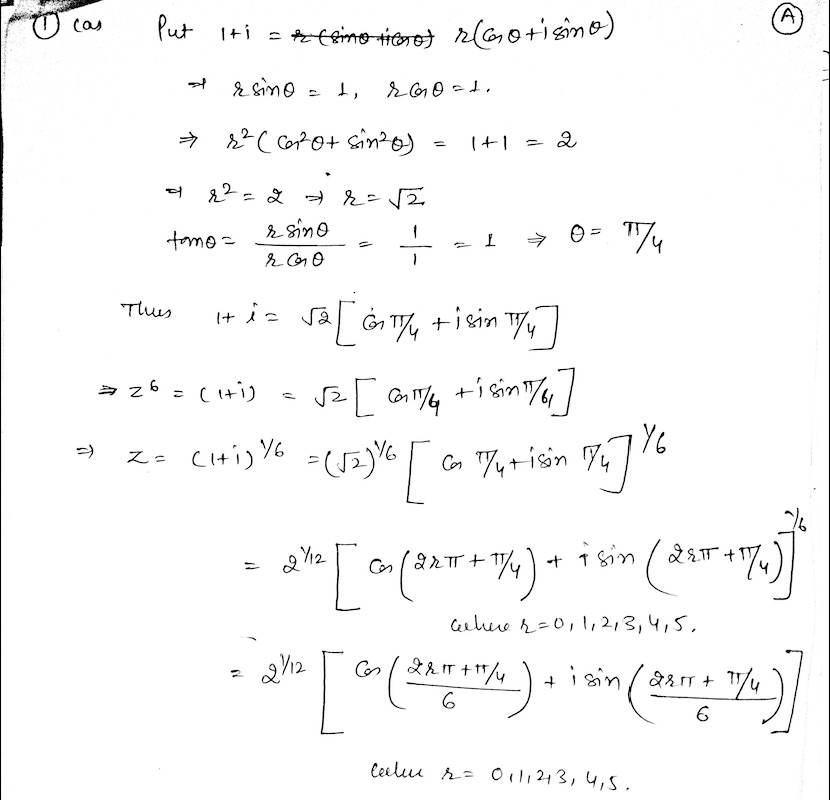 ① (a) Put 1+i = r(cosθ+i sinθ) Ⓐ
⇒ r sinθ = 1, r cosθ = 1.
⇒ r²(cos²θ+ sin²θ) = 1+1 = 2
⇒ r² = 2 ⇒ r = √2
tanθ = r sinθ / r cosθ = 1/1 = 1 ⇒ θ = π/4
Thus 1+i = √2[cos π/4 + i sin π/4]
⇒ z⁶ = (1+i) = √2[cos π/4 + i sin π/4]
⇒ z = (1+i)^1/6 = (√2)^1/6 [cos π/4 + i sin π/4]^1/6
= 2^1/12 [cos(2rπ + π/4) + i sin(2rπ + π/4)]^1/6
where r=0,1,2,3,4,5.
= 2^1/12 [cos((2rπ+π/4)/6) + i sin((2rπ+π/4)/6)]
where r= 0,1,2,3,4,5.